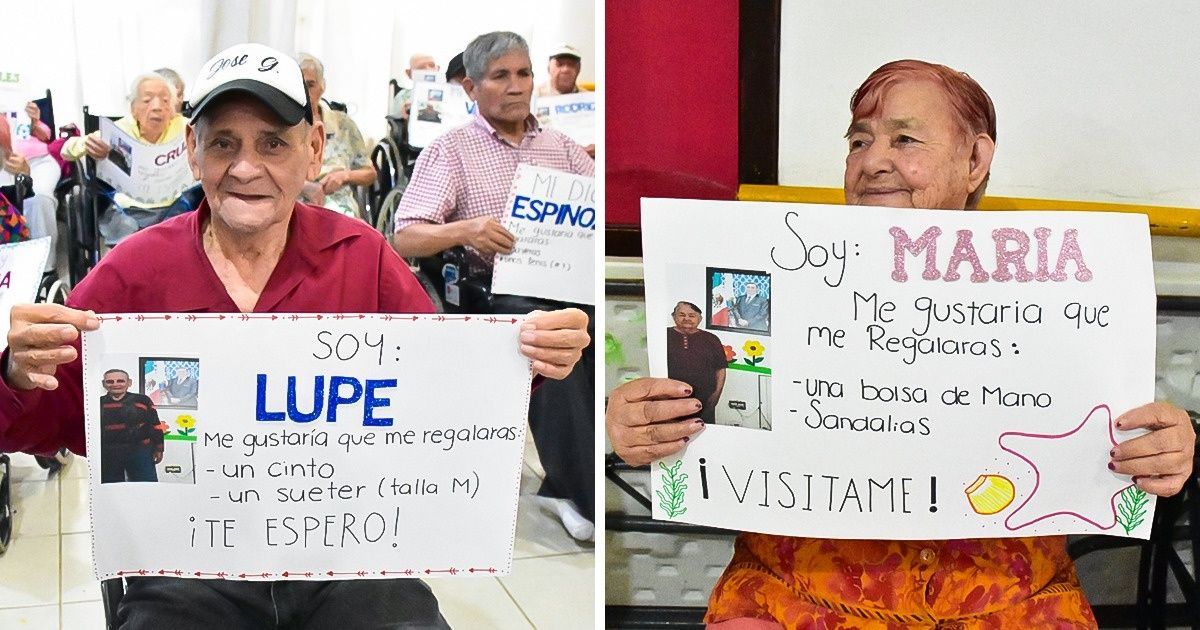 Jose G.
SOY:
LUPE
Me gustaría que me regalaras:
- un cinto
- un sueter (talla M)
¡TE ESPERO!
MI DIC
ESPINO
Me gustaria que
Soy: MARIA
Me gustaria que
me Regalaras:
-una bolsa de Mano
-Sandalias
¡VISITAME!